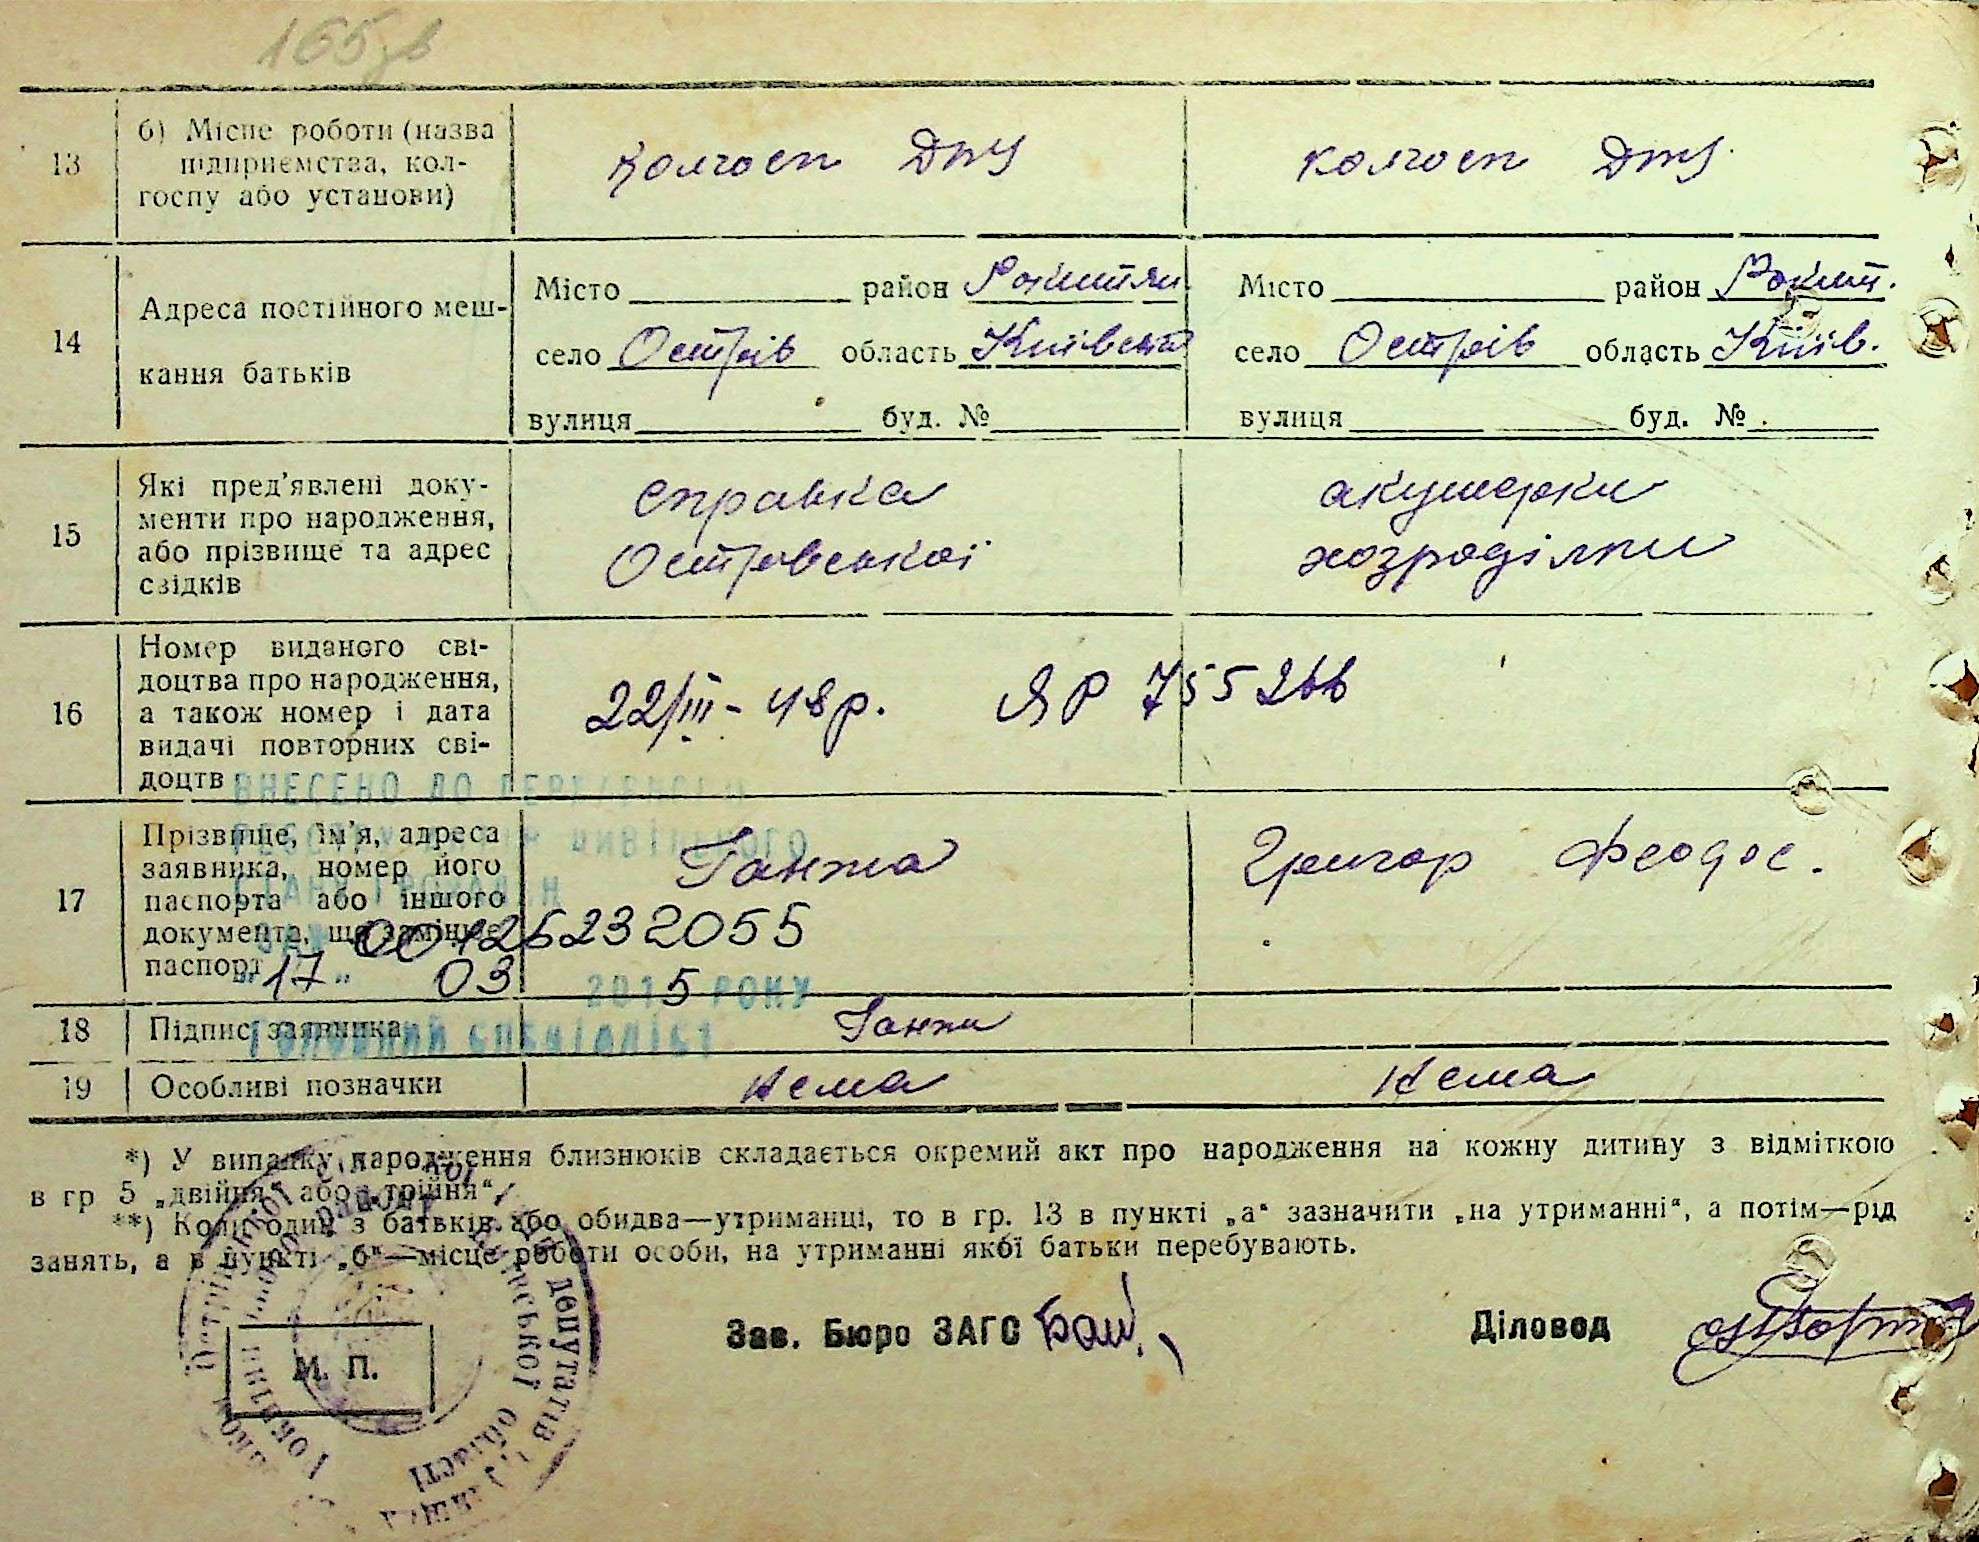 165 зв
13
б) Місце роботи (назва
підприємства, кол-
госпу або установи)
Колгосп ДПУ
колгосп ДПУ
14
Адреса постійного меш-
кання батьків
Місто район Рокитян
село Острів область Київська
вулиця буд. №
Місто район Рокит.
село Острів область Київ.
вулиця буд. №
15
Які пред'явлені доку-
менти про народження,
або прізвище та адрес
свідків
справка акушерки
Островської
16
Номер виданого сві-
доцтва про народження,
а також номер і дата
видачі повторних сві-
доцтв
22/III - 48 р. ЯР 755266
17
Прізвище, ім'я, адреса
заявника, номер його
паспорта або іншого
документа, що замінює
паспорт
Ганжа Григор Феодос.
ВНЕСЕНО ДО ДЕРЖАВНОГО
РЕЄСТРУ АКТІВ ЦИВІЛЬНОГО
СТАНУ ГРОМАДЯН
00126232055
"17" 03 2015 РОКУ
ГОЛОВНИЙ СПЕЦІАЛІСТ
18
Підпис заявника
Ганжа
19
Особливі позначки
нема
нема
*) У випадку народження близнюків складається окремий акт про народження на кожну дитину з відміткою
в гр 5 „двійня“ або „трійня“.
**) Коли один з батьків або обидва—утриманці, то в гр. 13 в пункті „а“ зазначити „на утриманні“, а потім—рід
занять, а в пункті „б“—місце роботи особи, на утриманні якої батьки перебувають.
М. П.
депутатів
Київської області
Зав. Бюро ЗАГС
Діловод